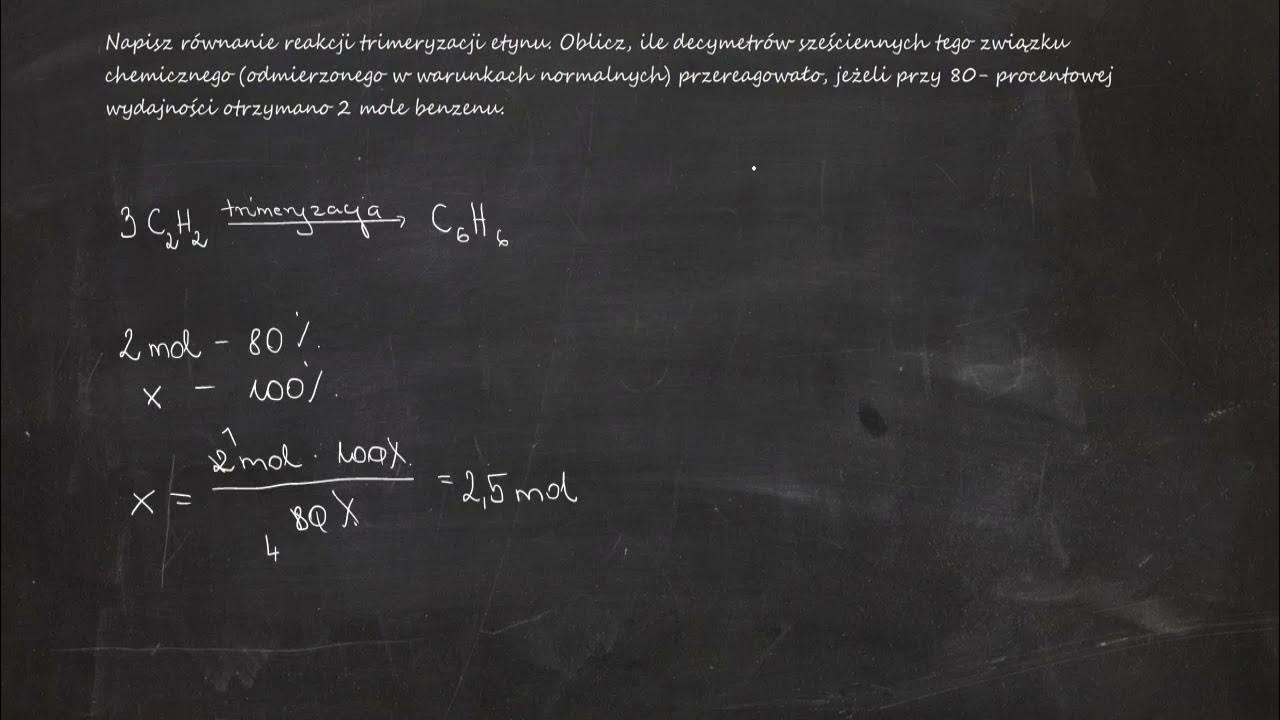 Napisz równanie reakcji trimeryzacji etynu. Oblicz, ile decymetrów sześciennych tego związku
chemicznego (odmierzonego w warunkach normalnych) przereagowało, jeżeli przy 80- procentowej
wydajności otrzymano 2 mole benzenu.
3 C₂H₂ trimeryzacja → C₆H₆
2 mol - 80%
x - 100%
x = 2 1 mol · 100% / 80% 4 = 2,5 mol